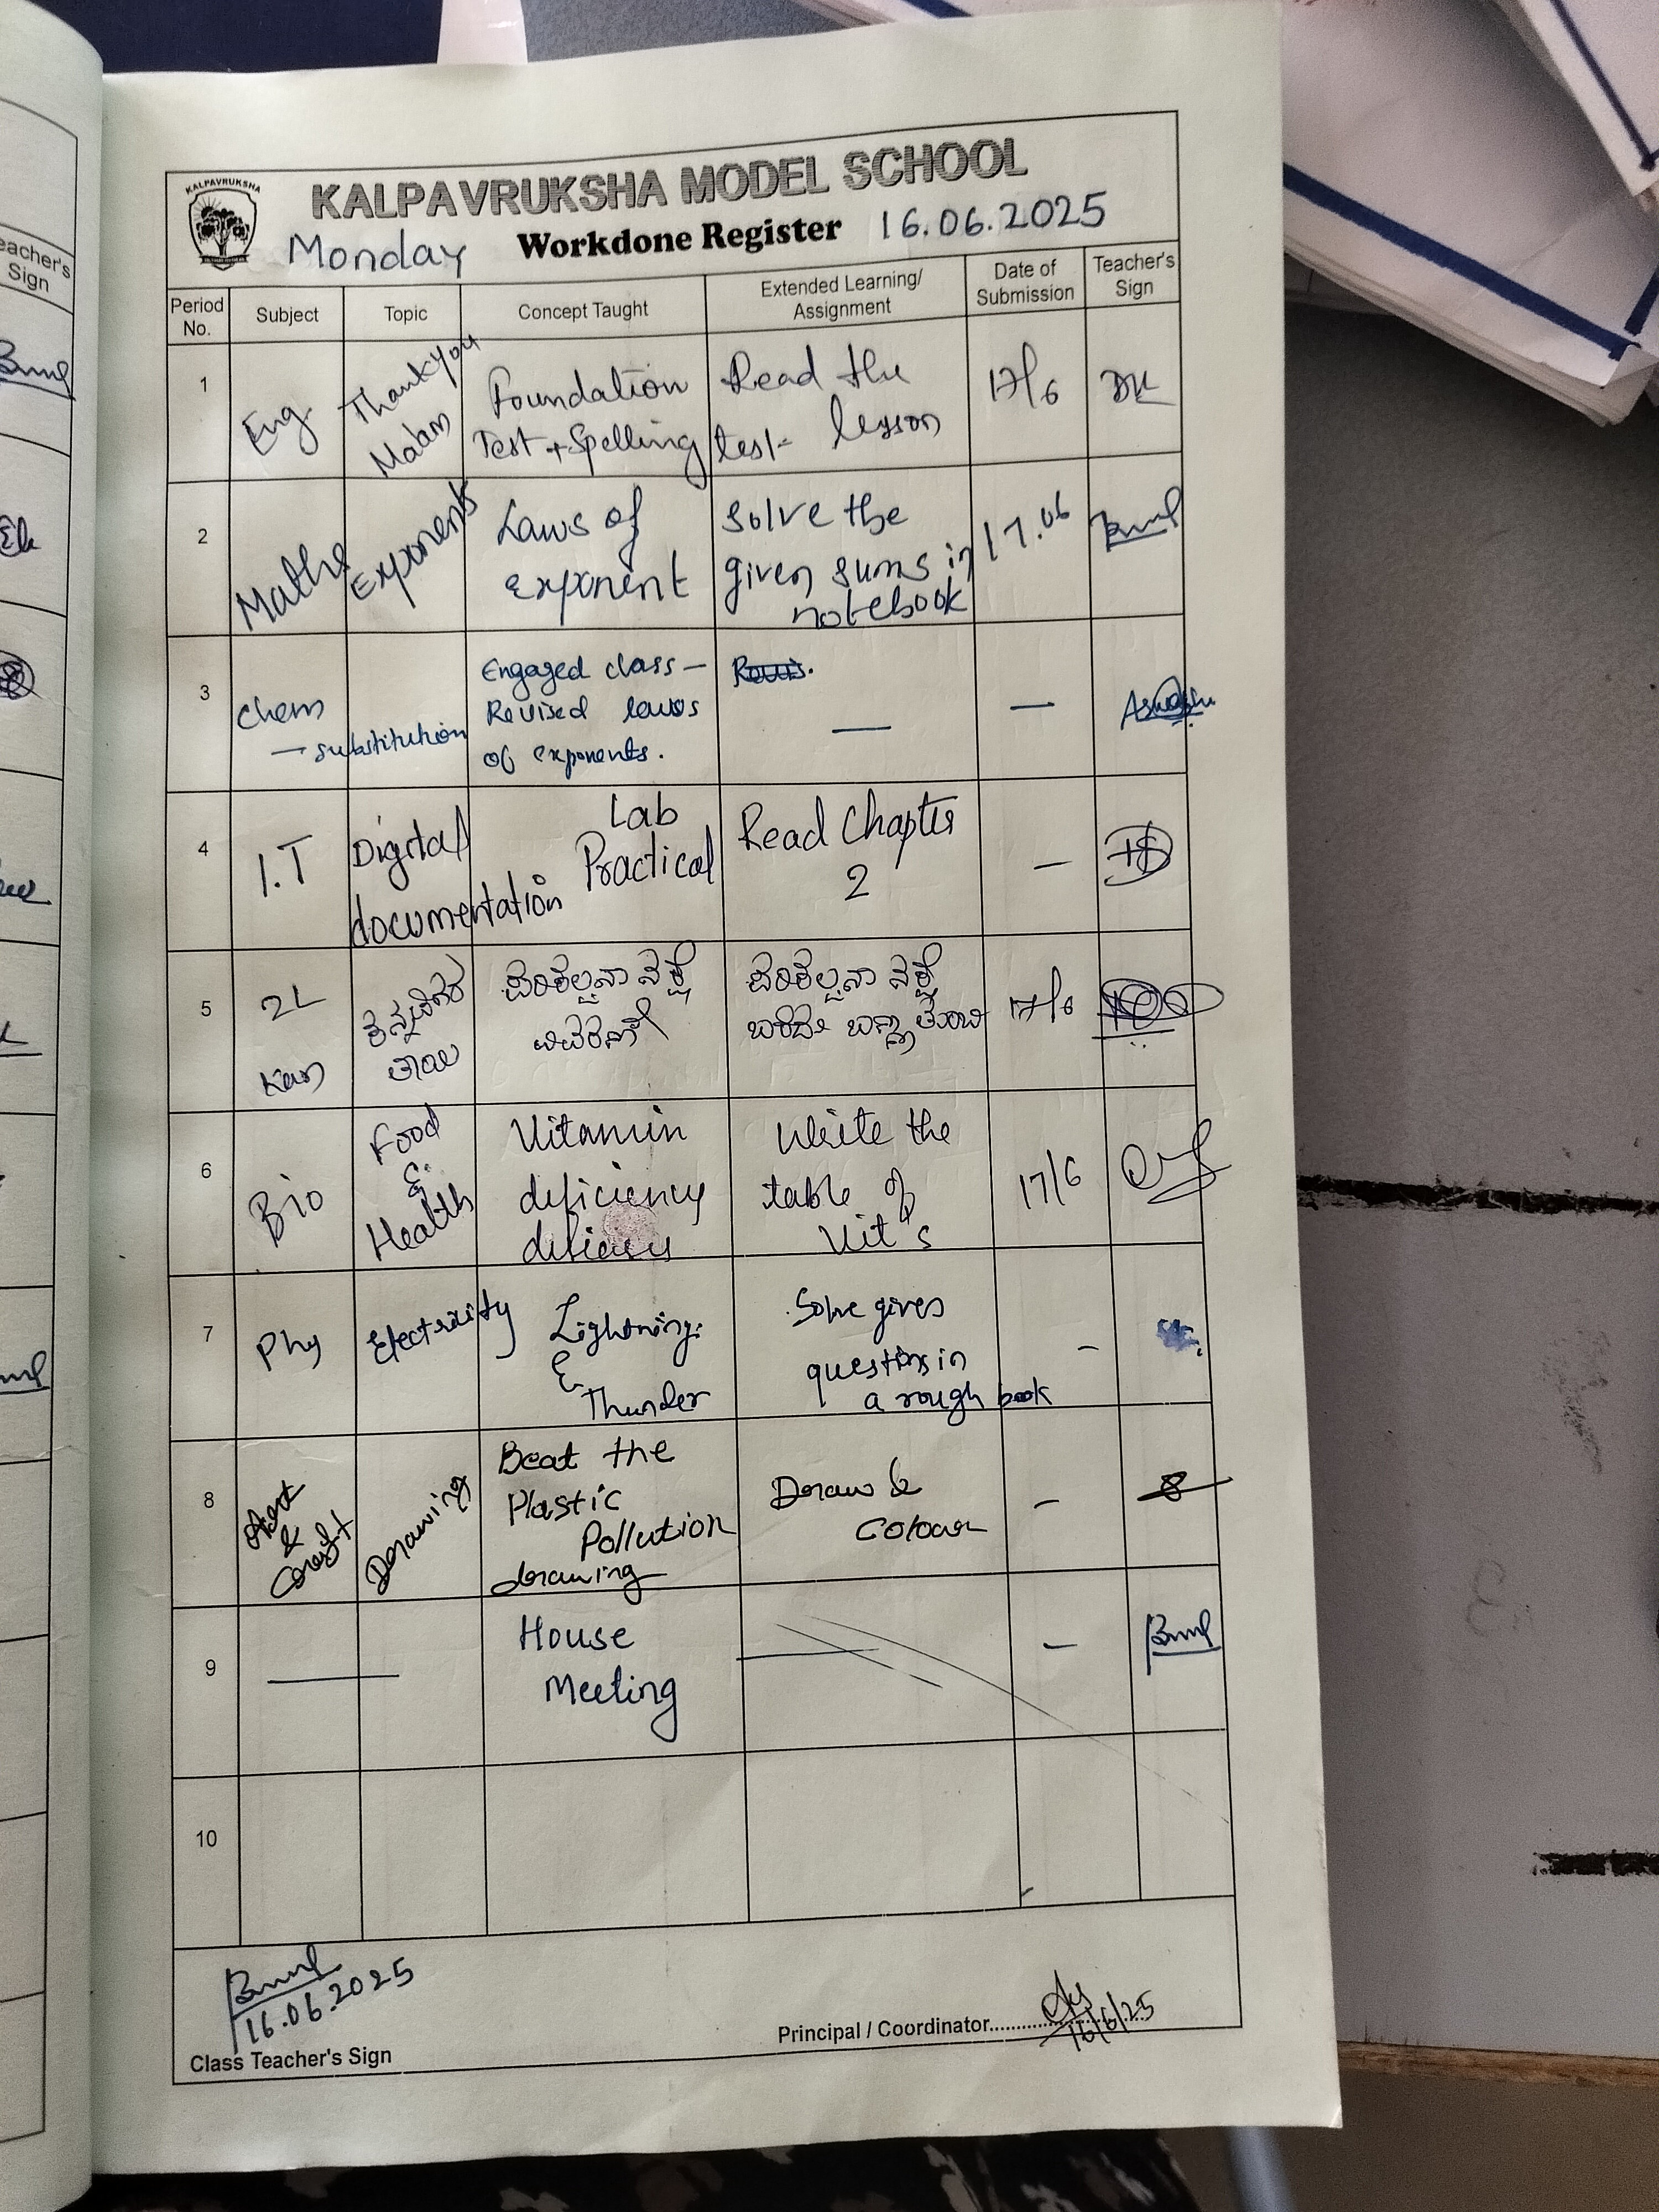 KALPAVRUKSHA
KALPAVRUKSHA MODEL SCHOOL
Monday Workdone Register 16.06.2025
Period No. Subject Topic Concept Taught Extended Learning/ Assignment Date of Submission Teacher's Sign
1 Eng. Thankyou Ma'am Foundation Test + Spelling test Read the lesson 17/6 DK
2 Maths Exponents Laws of exponent Solve the given sums in notebook 17.06
3 Chem → substitution Engaged class – Revised laws of exponents. — —
4 I.T Digital documentation Lab Practical Read Chapter 2 —
5 2L Kan ಪರಿಕಲ್ಪನಾ ನಕ್ಷೆ ವಿವರಣೆ ಪರಿಕಲ್ಪನಾ ನಕ್ಷೆ 17/6
6 Bio Food & Health Vitamin deficiency Write the table of Vit's 17/6
7 Phy Electricity Lightning & Thunder Solve given questions in a rough book -
8 Art & Craft Drawing Beat the Plastic Pollution drawing Draw & Colour -
9 — House Meeting — —
10
16.06.2025
Class Teacher's Sign
Principal / Coordinator 16/6/25
eacher's
Sign